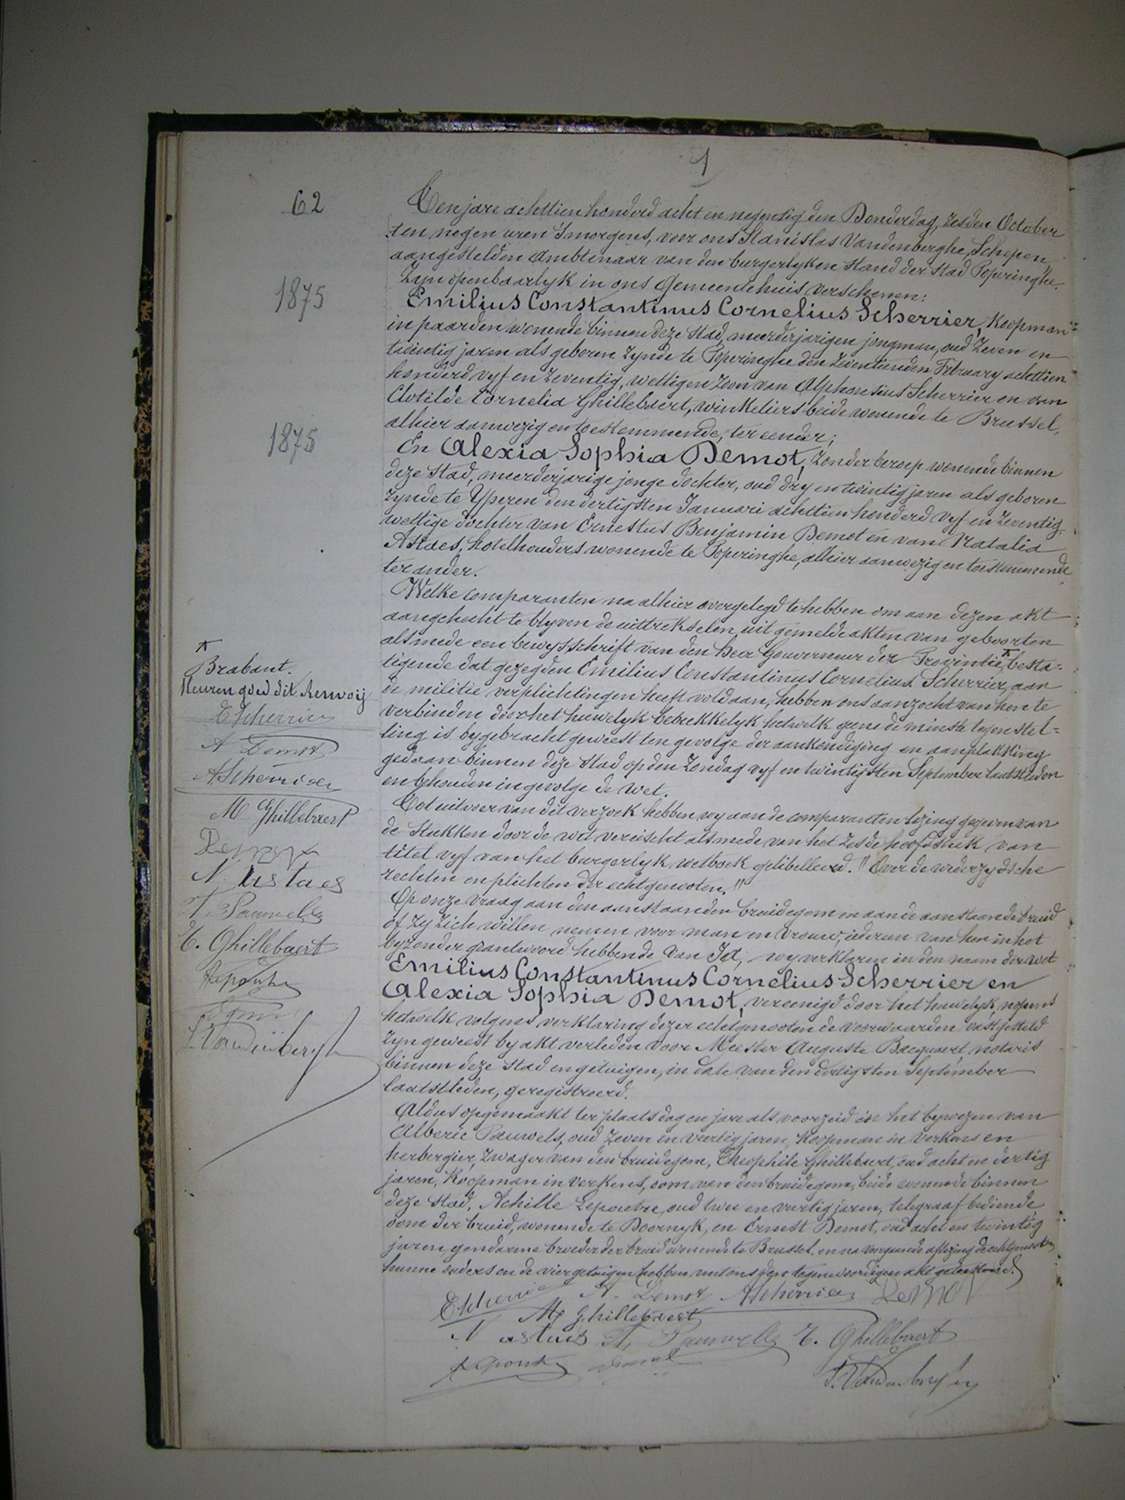 1
62
Ten jare achttien honderd acht en negentig den Donderdag, zesden October
ten negen uren 's morgens, voor ons Stanislas Vandenberghe, Schepen
aangestelden ambtenaar van den burgerlyken stand der stad Poperinghe.
Zyn openbaarlyk in ons Gemeentehuis verschenen:
1875
Emilius Constantinus Cornelius Scherrier, Koopman
in paarden wonende binnen deze stad, meerderjarigen jongman, oud zeven en
twintig jaren als geboren zynde te Poperinghe den zeventienden February achttien
honderd vyf en zeventig, wettigen zoon van Alphonsius Scherrier en van
Clotilde Cornelia Ghillebaert, winkeliers beide wonende te Brussel,
alhier aanwezig en toestemmende, ter eender;
1875
En Alexia Sophia Demot, zonder beroep wonende binnen
deze stad, meerderjarige jonge dochter, oud dry en twintig jaren als geboren
zynde te Yperen den dertigsten Januari achttien honderd vyf en zeventig
wettige dochter van Ernestus Benjamin Demot en van Natalia
Astaes, hotelhouders wonende te Poperinghe, alhier aanwezig en toestemmende
ter ander.
Welke comparanten na alhier overgelegd te hebben om aan dezen akt
aangehecht te blyven de uittrekselen uit gemelde akten van geboorten
alsmede een bewysschrift van den Heer Gouverneur der Provintie besta-
tigende dat gezegden Emilius Constantinus Cornelius Scherrier, aan
de militie verplichtingen heeft voldaan, hebben ons aanzocht van hen te
verbinden door het huwelyk betrekkelyk hetwelk geene de minste tegenstel-
ling is bygebracht geweest ten gevolge der aankondiging en aanplakking
gedaan binnen deze stad op den Zondag vyf en twintigsten September laatstleden
en ghouden ingevolge de wet.
Brabant.
Keuren goed dit Renvoij
E Scherrier
A Demot
A Scherrier
M Ghillebaert
Demot
N. Astaes
A. Pauwels
T. Ghillebaert
S. Vandenberghe
Tot uitvoer van dit verzoek hebben wy aan de comparanten lezing gegeven van
de stukken door de wet vereischt alsmede van het zesde hoofdstuk van
titel vyf van het burgerlyk wetboek getibelleerd. "Over de wederzydsche
rechten en plichten der echtgenooten."
Op onze vraag aan den aanstaanden bruidegom en aan de aanstaande bruid
of zy zich willen nemen voor man en vrouw, iedereen van hen in het
byzonder geantwoord hebbende van Ja, wy verklaren in den naam der wet
Emilius Constantinus Cornelius Scherrier en
Alexia Sophia Demot, vereenigd door het huwelyk, nopens
hetwelk volgens verklaring dezer echtgenooten de voorwaarden vastgesteld
zyn geweest by akt verleden voor Meester Auguste Bacquaert notaris
binnen deze stad en getuigen, in date van den dertigsten September
laatstleden, geregistreerd.
Aldus opgemaakt ter plaats dag en jare als voorzeid in het bywezen van
Alberic Pauwels, oud zeven en veertig jaren, Koopman in verkens en
herbergier, zwager van den bruidegom, Theophile Ghillebaert, oud acht en dertig
jaren, Koopman in verkens, oom van den bruidegom, beide wonende binnen
deze stad, Achille Lepoutre, oud twee en veertig jaren, telegraaf bediende
oom der bruid, wonende te Doornyk, en Ernest Demot, oud acht en twintig
jaren, gendarme broeder der bruid wonende te Brussel, en na voorgaande aflezing de echtgenooten
hunne ouders en de vier getuigen hebben met ons den tegenwoordigen akt geteekend.
E Scherrier A. Demot A Scherrier Demot
M Ghillebaert
N astaes A. Pauwels T. Ghillebaert
S. Vandenberghe